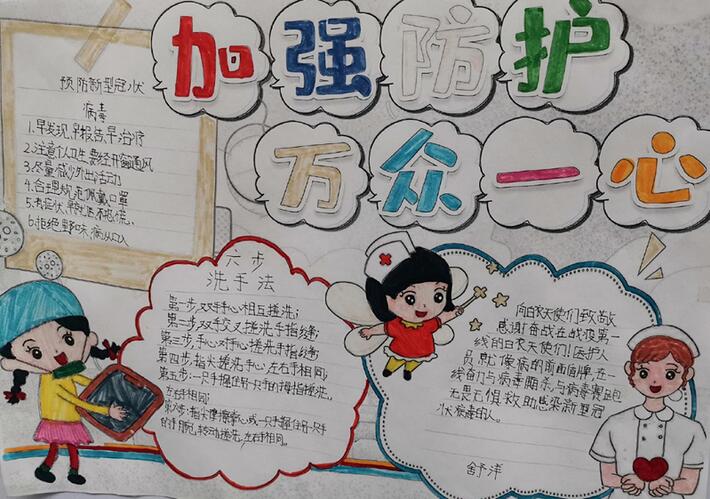 加强防护
万众一心
预防新型冠状
病毒
1.早发现,早报告,早治疗
2.注意个人卫生,要经开窗通风
3.尽量减少外出活动
4.合理规范佩戴口罩
6.拒绝野味,病从口入
六步
洗手法
第一步:双手手心相互搓洗;
第二步双手交叉搓洗手指缝;
第三步,手心对手心搓洗手指缝
第四步指尖搓洗手心,左右手相同;
第五步:一只手握住另一只手的拇指搓洗,
左右手相同;
指尖摩擦掌心或一只手握住另一只
手的手腕,转动搓洗,左右手相同。
向白衣天使们致敬
感谢奋战在战疫第一
线的白衣天使们!医护人
员就像病的
线奋力与病毒
无畏无惧救助感染新型冠
状病毒的人。